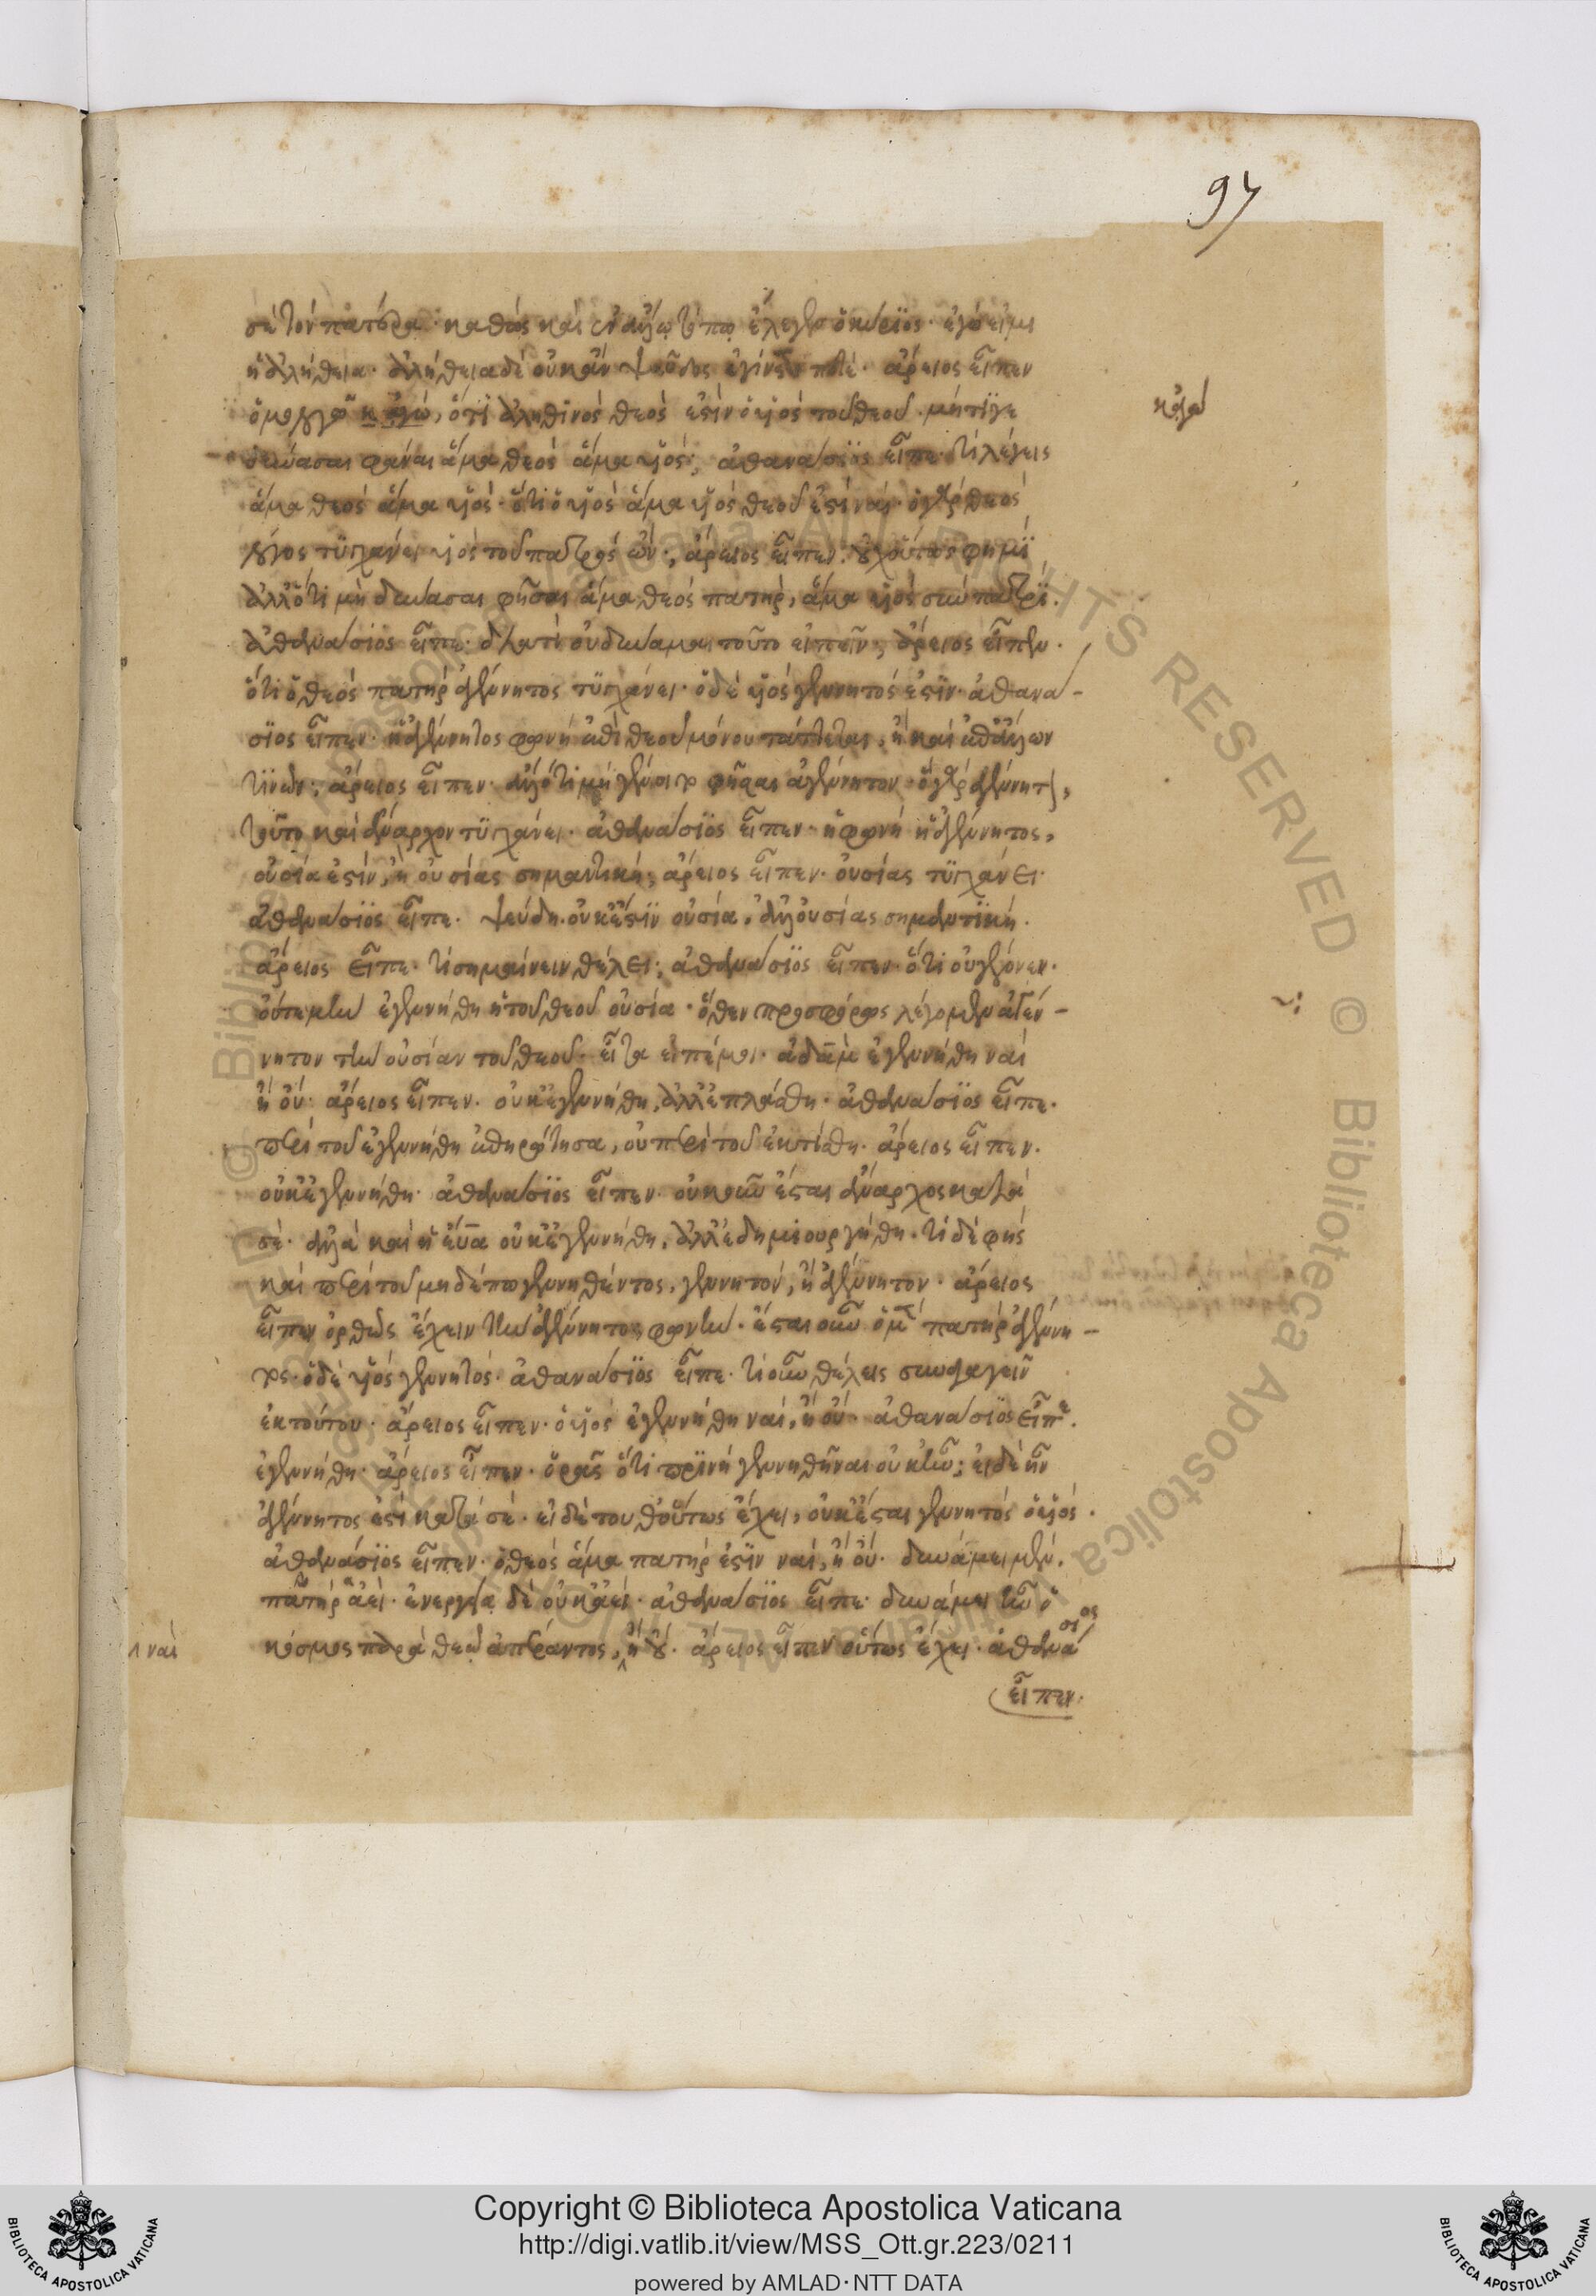 97
σὲ τὸν πατέρα· καθὼς καὶ ἐν ἄλλῳ τόπῳ ἔλεγεν ὁ κύριος· ἐγώ εἰμι
ἡ ἀλήθεια· ἀλήθεια δὲ οὐκ ἂν ψεῦδος ποτέ· ἄρειος εἶπεν
ὁμολογῶ κἀγώ, ὅτι ἀληθινὸς θεός ἐστιν ὁ υἱὸς τοῦ θεοῦ·
κἀγὼ
φάναι ἅμα θεὸς ἅμα υἱός; ἀθανάσιος εἶπε· τί λέγεις
ἅμα θεὸς ἅμα υἱός· ὅτι ὁ υἱὸς ἅμα υἱὸς θεοῦ ἐστί ναί· ὁ γὰρ θεὸς
λόγος τυγχάνει υἱὸς τοῦ πατρὸς ὤν; ἄρειος εἶπεν· οὐχ οὕτως φημὶ
ἀλλ' ὅτι μὴ δύνασαι φῆσαι ἅμα θεὸς πατὴρ, ἅμα υἱὸς σὺν πατρί·
ἀθανάσιος εἶπε· διατί οὐ δύναμαι τοῦτο εἰπεῖν; ἄρειος εἶπεν·
ὅτι ὁ θεὸς πατὴρ ἀγέννητος τυγχάνει· ὁ δὲ υἱὸς γεννητός ἐστιν· ἀθανά-
σιος εἶπεν· ἡ ἀγέννητος φωνὴ ἐπὶ θεοῦ μόνου τάττεται, ἢ καὶ ἐπ' ἄλλων
τινῶν; ἄρειος εἶπεν· φῆσαι ἀγέννητον· ὃ γὰρ ἀγέννητον,
τοῦτο καὶ ἄναρχον τυγχάνει· ἀθανάσιος εἶπεν· ἡ φωνὴ ἡ ἀγέννητος,
οὐσία ἐστὶν, ἢ οὐσίας σημαντική; ἄρειος εἶπεν· οὐσίας τυγχάνει·
ἀθανάσιος εἶπε· ψεύδῃ· οὐκ ἔστιν οὐσία, ἀλλ' οὐσίας σημαντική·
ἄρειος εἶπε· τί σημαίνειν θέλει; ἀθανάσιος εἶπεν· ὅτι οὐ γέγονεν·
οὔτε μὴν ἐγεννήθη ἡ τοῦ θεοῦ οὐσία· ὅθεν προσφόρως λέγομεν ἀγέν-
νητον τὴν οὐσίαν τοῦ θεοῦ· εἶτα εἰπέ μοι· ἀδὰμ ἐγεννήθη ναὶ
ἢ οὔ· ἄρειος εἶπεν· οὐκ ἐγεννήθη, ἀλλ' ἐπλάσθη· ἀθανάσιος εἶπε·
περὶ τοῦ ἐγεννήθη ἐπηρώτησα, οὐ περὶ τοῦ ἐκτίσθη· ἄρειος εἶπεν·
οὐκ ἐγεννήθη· ἀθανάσιος εἶπεν· οὐκοῦν ἔσται ἄναρχος κατὰ
σέ· ἀλλὰ καὶ ἡ εὔα οὐκ ἐγεννήθη, ἀλλ' ἐδημιουργήθη· τί δὲ φῂς
καὶ περὶ τοῦ μηδέπω γεννηθέντος, γεννητὸν, ἢ ἀγέννητον· ἄρειος
εἶπεν ὀρθῶς ἔχειν τὴν ἀγέννητος φωνὴν· ἔσται οὖν ὁ μὲν πατὴρ ἀγέννη-
τος· ὁ δὲ υἱὸς γεννητός· ἀθανάσιος εἶπε· τί οὖν θέλεις συναγαγεῖν
ἐκ τούτου· ἄρειος εἶπεν· ὁ υἱὸς ἐγεννήθη ναί, ἢ οὔ· ἀθανάσιος εἶπε·
ἐγεννήθη· ἄρειος εἶπεν· ὁρᾷς ὅτι πρινὴ γεννηθῆναι οὐκ ἦν; εἰ δὲ ἦν
ἀγέννητος ἐστὶ κατὰ σέ· εἰ δὲ τοῦθ' οὕτως ἔχει, οὐκ ἔσται γεννητὸς ὁ υἱός·
ἀθανάσιος εἶπεν· ὁ θεὸς ἅμα πατήρ ἐστιν ναί, ἢ οὔ· δυνάμει μέν,
πατὴρ ἀεί· ἐνεργείᾳ δὲ οὐκ ἀεί· ἀθανάσιος εἶπε· δυνάμει ἦν ὁ
κόσμος παρὰ θεῷ ἀπέραντος, ἢ οὔ· ἄρειος εἶπεν οὕτως ἔχει· ἀθανάσιος
ναὶ
εἶπεν·
Copyright © Biblioteca Apostolica Vaticana
http://digi.vatlib.it/view/MSS_Ott.gr.223/0211
powered by AMLAD·NTT DATA
BIBLIOTECA APOSTOLICA VATICANA
BIBLIOTECA APOSTOLICA VATICANA